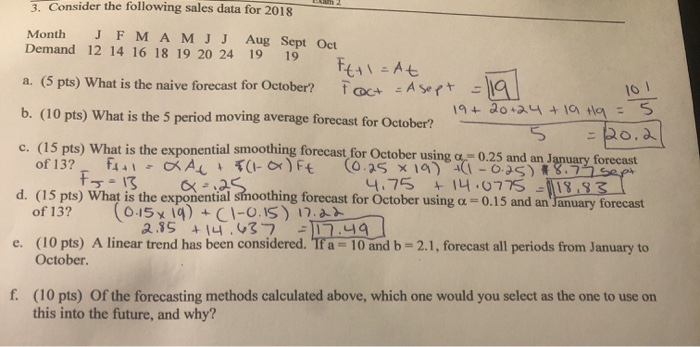 3. Consider the following sales data for 2018
Month J F M A M J J Aug Sept Oct
Demand 12 14 16 18 19 20 24 19 19
Ft+1 = At
a. (5 pts) What is the naive forecast for October? Foct = Asept = 19
b. (10 pts) What is the 5 period moving average forecast for October? 19 + 20+24 + 19 +19 = 101
5 5
= 20.2
c. (15 pts) What is the exponential smoothing forecast for October using α = 0.25 and an January forecast
of 13? Ft+1 = αAt + (1-α)Ft (0.25 x 19) +(1-0.25) 18.77 sept
FJ = 13 α = .25 4.75 + 14.0775 = 18.83
d. (15 pts) What is the exponential smoothing forecast for October using α = 0.15 and an January forecast
of 13? (0.15x19) + (1-0.15) 17.22
2.85 + 14.637 = 17.49
e. (10 pts) A linear trend has been considered. If a = 10 and b = 2.1, forecast all periods from January to
October.
f. (10 pts) Of the forecasting methods calculated above, which one would you select as the one to use on
this into the future, and why?